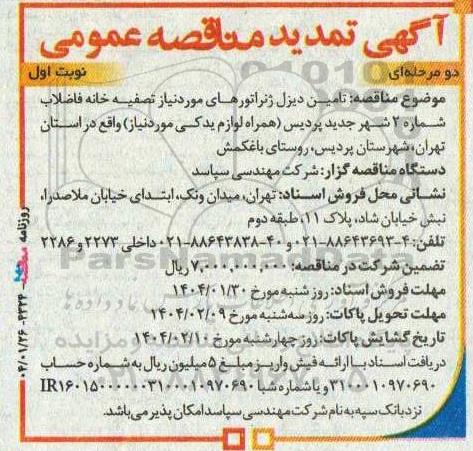 آگهی تمدید مناقصه عمومی
دو مرحله‌ای
نوبت اول
موضوع مناقصه: تامین دیزل ژنراتورهای موردنیاز تصفیه خانه فاضلاب
شماره ۲ شهر جدید پردیس (همراه لوازم یدکی موردنیاز) واقع در استان
تهران، شهرستان پردیس، روستای باغکمش
دستگاه مناقصه گزار: شرکت مهندسی سپاسد
نشانی محل فروش اسناد: تهران، میدان ونک، ابتدای خیابان ملاصدرا،
نبش خیابان شاد، پلاک ۱۱، طبقه دوم
تلفن: ۴-۸۸۶۴۳۶۹۳-۰۲۱ و ۴۰-۸۸۶۴۳۸۳۸-۰۲۱ داخلی ۲۲۷۳ و ۲۲۸۶
تضمین شرکت در مناقصه: ۷,۰۰۰,۰۰۰,۰۰۰ ریال
مهلت فروش اسناد: روز شنبه مورخ ۱۴۰۴/۰۱/۳۰
مهلت تحویل پاکات: روز سه‌شنبه مورخ ۱۴۰۴/۰۲/۰۹
تاریخ گشایش پاکات: روز چهارشنبه مورخ ۱۴۰۴/۰۲/۱۰
دریافت اسناد با ارائه فیش واریز مبلغ ۵ میلیون ریال به شماره حساب
۳۱۰۰۰۱۰۹۷۰۶۹۰ و یا شماره شبا IR۱۶۰۱۵۰۰۰۰۰۰۳۱۰۰۰۱۰۹۷۰۶۹۰
نزد بانک سپه به نام شرکت مهندسی سپاسد امکان پذیر می‌باشد.
روزنامه مناقصه ۴۳۳۴-۰۴/۰۱/۲۶
ParsNamadData